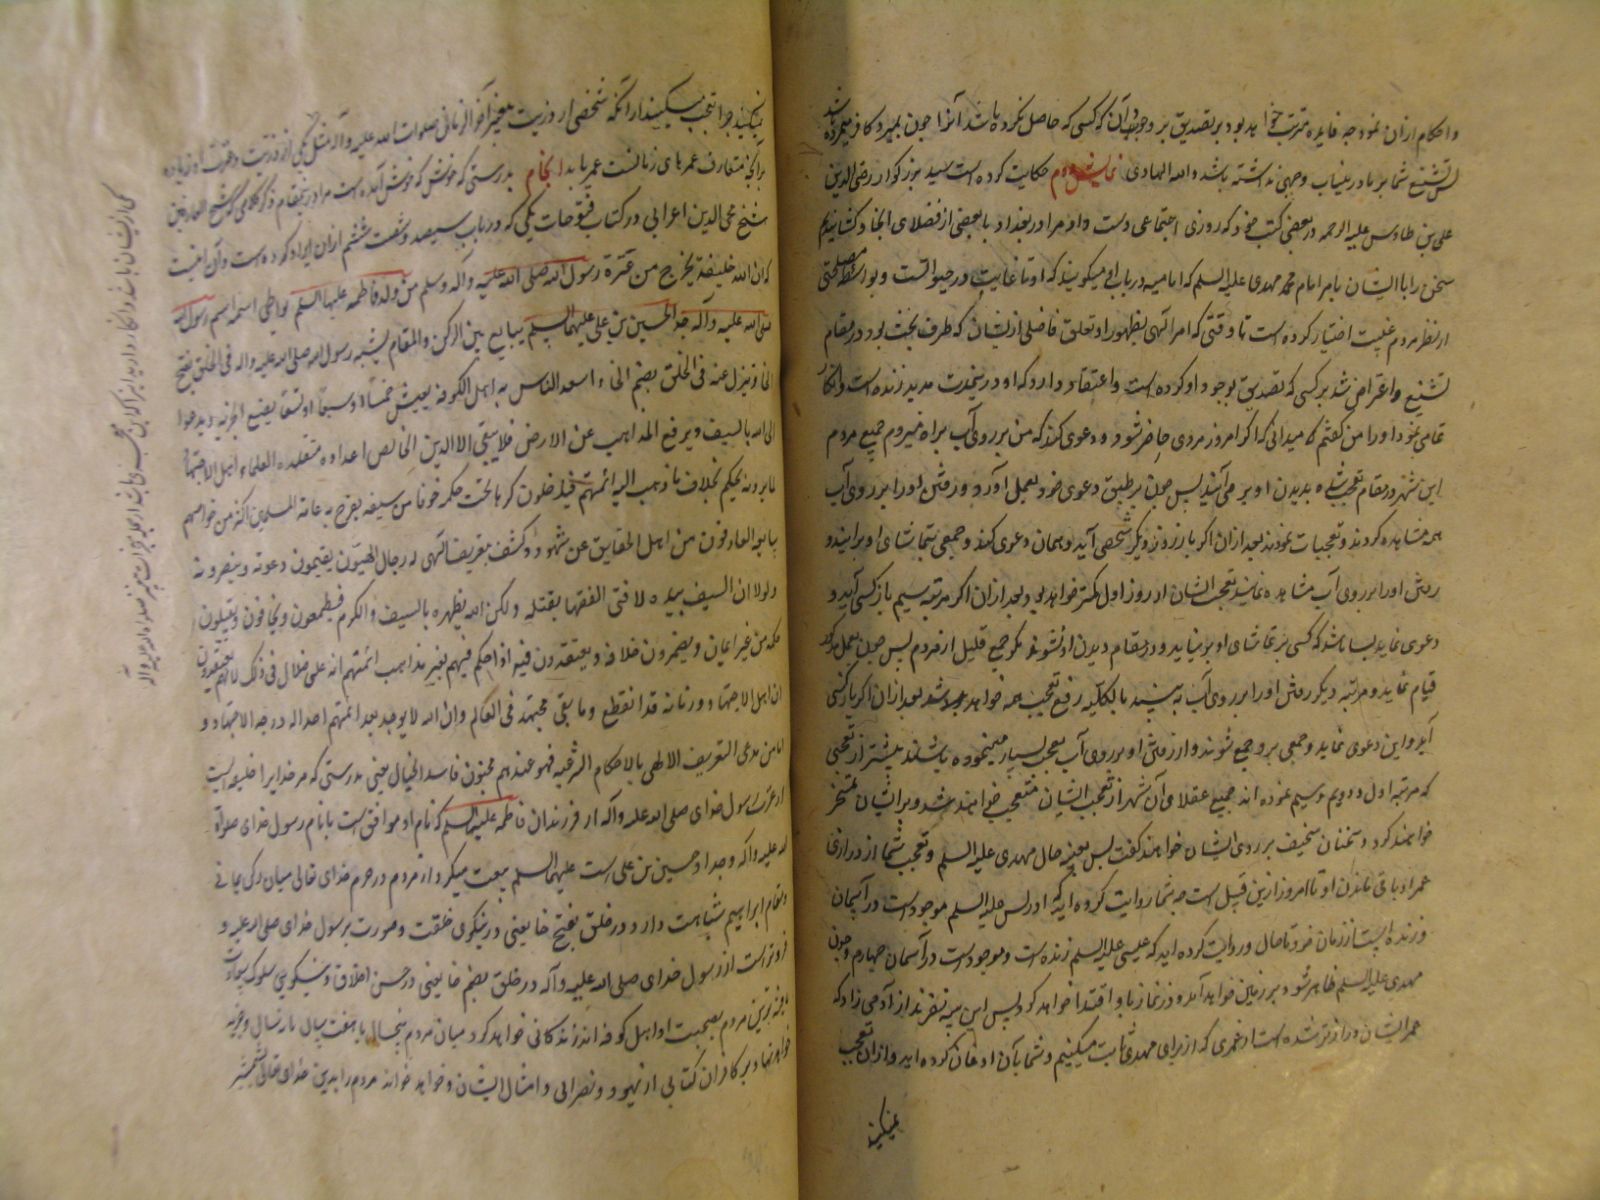 و احکام ازان نمود چه فایده مترتب خواهد بود بر تصدیق بر وجود آن که کسی که حاصل نکرده باشد آنرا چون بمیرد کافر مرده باشد
پس تشنیع شما بر ما درینباب وجهی نداشته باشد والله الهادی نمایش دوم حکایت کرده است سید بزرگوار رضی الدین
علی بن طاوس علیه الرحمه در بعضی کتب خود که روزی اجتماعی دست داد مرا در بغداد با بعضی از فضلای انجا و کشانیدم
سخن را با ایشان بامر امام محمد مهدی علیه السلم که امامیه در باب او میگویند که او تا غایت در حیاتست و بواسطه مصلحتی
از نظر مردم غیبت اختیار کرده است تا وقتی که امر الهی بظهور او تعلق فاضلی از ایشان که طرف بحث بود در مقام
تشنیع و اعتراض شد بر کسی که تصدیق بوجود او کرده است و اعتقاد دارد که او درینمدت مدید زنده است و انکار
تمامی نمود او را من گفتم که میدانی که اگر امروز مردی حاضر شود و دعوی کند که من بر روی آب براه میروم جمیع مردم
این شهر در مقام تعجب شده بدیدن او بر می آیند پس چون بر طبق دعوی خود بعمل آورد و رفتن او را بر روی آب
همه مشاهده کردند و تعجبات نمودند بعد ازان اگر باز روز دیگر شخصی آید و همان دعوی کند و جمعی بتماشای او برایند و
رفتن او را بر روی آب مشاهده نمایند تعجب ایشان از روز اول کمتر خواهد بود و بعد ازان اگر مرتبه سیم باز کسی آید و
دعوی نماید بسا باشد که کسی بر تماشای او بر نیاید و در مقام دیدن او نشوند مگر جمع قلیل از مردم پس چون بعمل مذکور
قیام نماید و مرتبه دیگر رفتن او را بر روی آب به بینند بالکلیه رفع تعجب همه خواهد شد بعد ازان اگر باز کسی
آید و این دعوی نماید و جمعی برو جمع شوند و از رفتن او بر روی آب تعجب بسیار مینموده باشند بیشتر از تعجبی
که مرتبه اول و دویم و سیم نموده اند جمیع عقلای آن شهر از تعجب ایشان متعجب خواهند شد و بر ایشان تمسخر
خواهند کرد و سخنان سخیف بر روی ایشان خواهند گفت پس بعینه حال مهدی علیه السلم و تعجب شما از درازی
عمر او و باقی ماندن او تا امروز ازین قبیل است چه شما روایت کرده اید که ادریس علیه السلم موجود است در آسمان
و زنده است از زمان خود تا حال و روایت کرده اید که عیسی علیه السلم زنده است و موجود است در آسمان چهارم و چون
مهدی علیه السلم ظاهر شود بر زمین خواهد آمد و در نماز با او اقتدا خواهد کرد پس این سه نفرند از آدمی زاد که
عمر ایشان دراز تر شده است از عمری که از برای مهدی ثابت میکنیم و شما بآن اذعان کرده اید و ازان تعجب
نمیکنید
نمیکنید چرا تعجب میکنید از آنکه شخصی از ذریت پیغمبر آخر الزمان صلوات الله علیه و آله مثل یکی از ذریت و عترت او زیاده
بر آنچه متعارف عمرهای زمانست عمر یابد انجام بدرستی که خوش که خوش آینده است مرا درینمقام ذکر کلامی که شیخ العارفین
شیخ محی الدین اعرابی در کتاب فتوحات مکی که در باب سیصد و شصت و ششم ازان ایراد کرده است و آن اینست
که ان الله خلیفة یخرج من عترة رسول الله صلی الله علیه و آله وسلم من ولد فاطمه علیها السلم یواطی اسمه اسم رسول الله
صلی الله علیه و آله جده الحسین بن علی علیهما السلم یبایع بین الرکن والمقام یشبه رسول الله صلی الله علیه واله فی الخلق بفتح
الخا و ینزل عنه فی الخلق بضم الخاء اسعد الناس به اهل الکوفه یعیش خمسا او سبعا او تسعا یضع الجزیه و یدعوا
الی الله بالسیف و یرفع المذاهب عن الارض فلا یبقی الا الدین الخالص اعداوه مقلده العلماء اهل الاجتهاد
لما یرونه یحکم بخلاف ما ذهب الیه ائمتهم فیدخلون کرها تحت حکمه خوفا من سیفه یفرح به عامة المسلمین اکثر من خواصهم
یبایعه العارفون من اهل الحقایق عن شهود و کشف بتعریف الهی له رجال الهیون یقیمون دعوته و ینصرونه
ولولا ان السیف بیده لافتی الفقها بقتله ولکن الله یظهره بالسیف والکرم فیطمعون و یخافون و یقبلون
حکمه من غیر ایمان و یضمرون خلافه و یعتقدون فیه اذا حکم فیهم بغیر مذاهب ائمتهم انه علی ضلال فی ذلک لانهم یعتقدون
ان اهل الاجتهاد و زمانه قد انقطع و ما بقی مجتهد فی العالم وان الله لا یوجد بعد ائمتهم احدا له درجة الاجتهاد و
اما من یدعی التعریف الالهی بالاحکام الشرعیه فهو عندهم مجنون فاسد الخیال یعنی بدرستی که مر خدایرا خلیفه ایست
از عترت رسول خدای صلی الله علیه و آله از فرزندان فاطمه علیها السلم که نام او موافق است با نام رسول خدای صلوات
الله علیه و اله و جد او حسین بن علی است علیهما السلم بیعت میگیرد از مردم در حرم خدای تعالی میان رکن یمانی
و مقام ابراهیم شباهت دارد در خلق بفتح خا یعنی در نیکوی خلقت و صورت برسول خدای صلی الله علیه و
فروتر است از رسول خدای صلی الله علیه و آله در خلق بضم خا یعنی در حسن اخلاق و نیکویی سلوک
مردم بصحبت او اهل کوفه اند زندکانی خواهد کرد میان مردم پنجسال یا هفت سال یا نه سال و جزیه
خواهد نهاد بر کافران کتابی از یهود و نصرانی و امثال ایشان و خواهد خواند مردم را بدین خدای تعالی بشمشیر